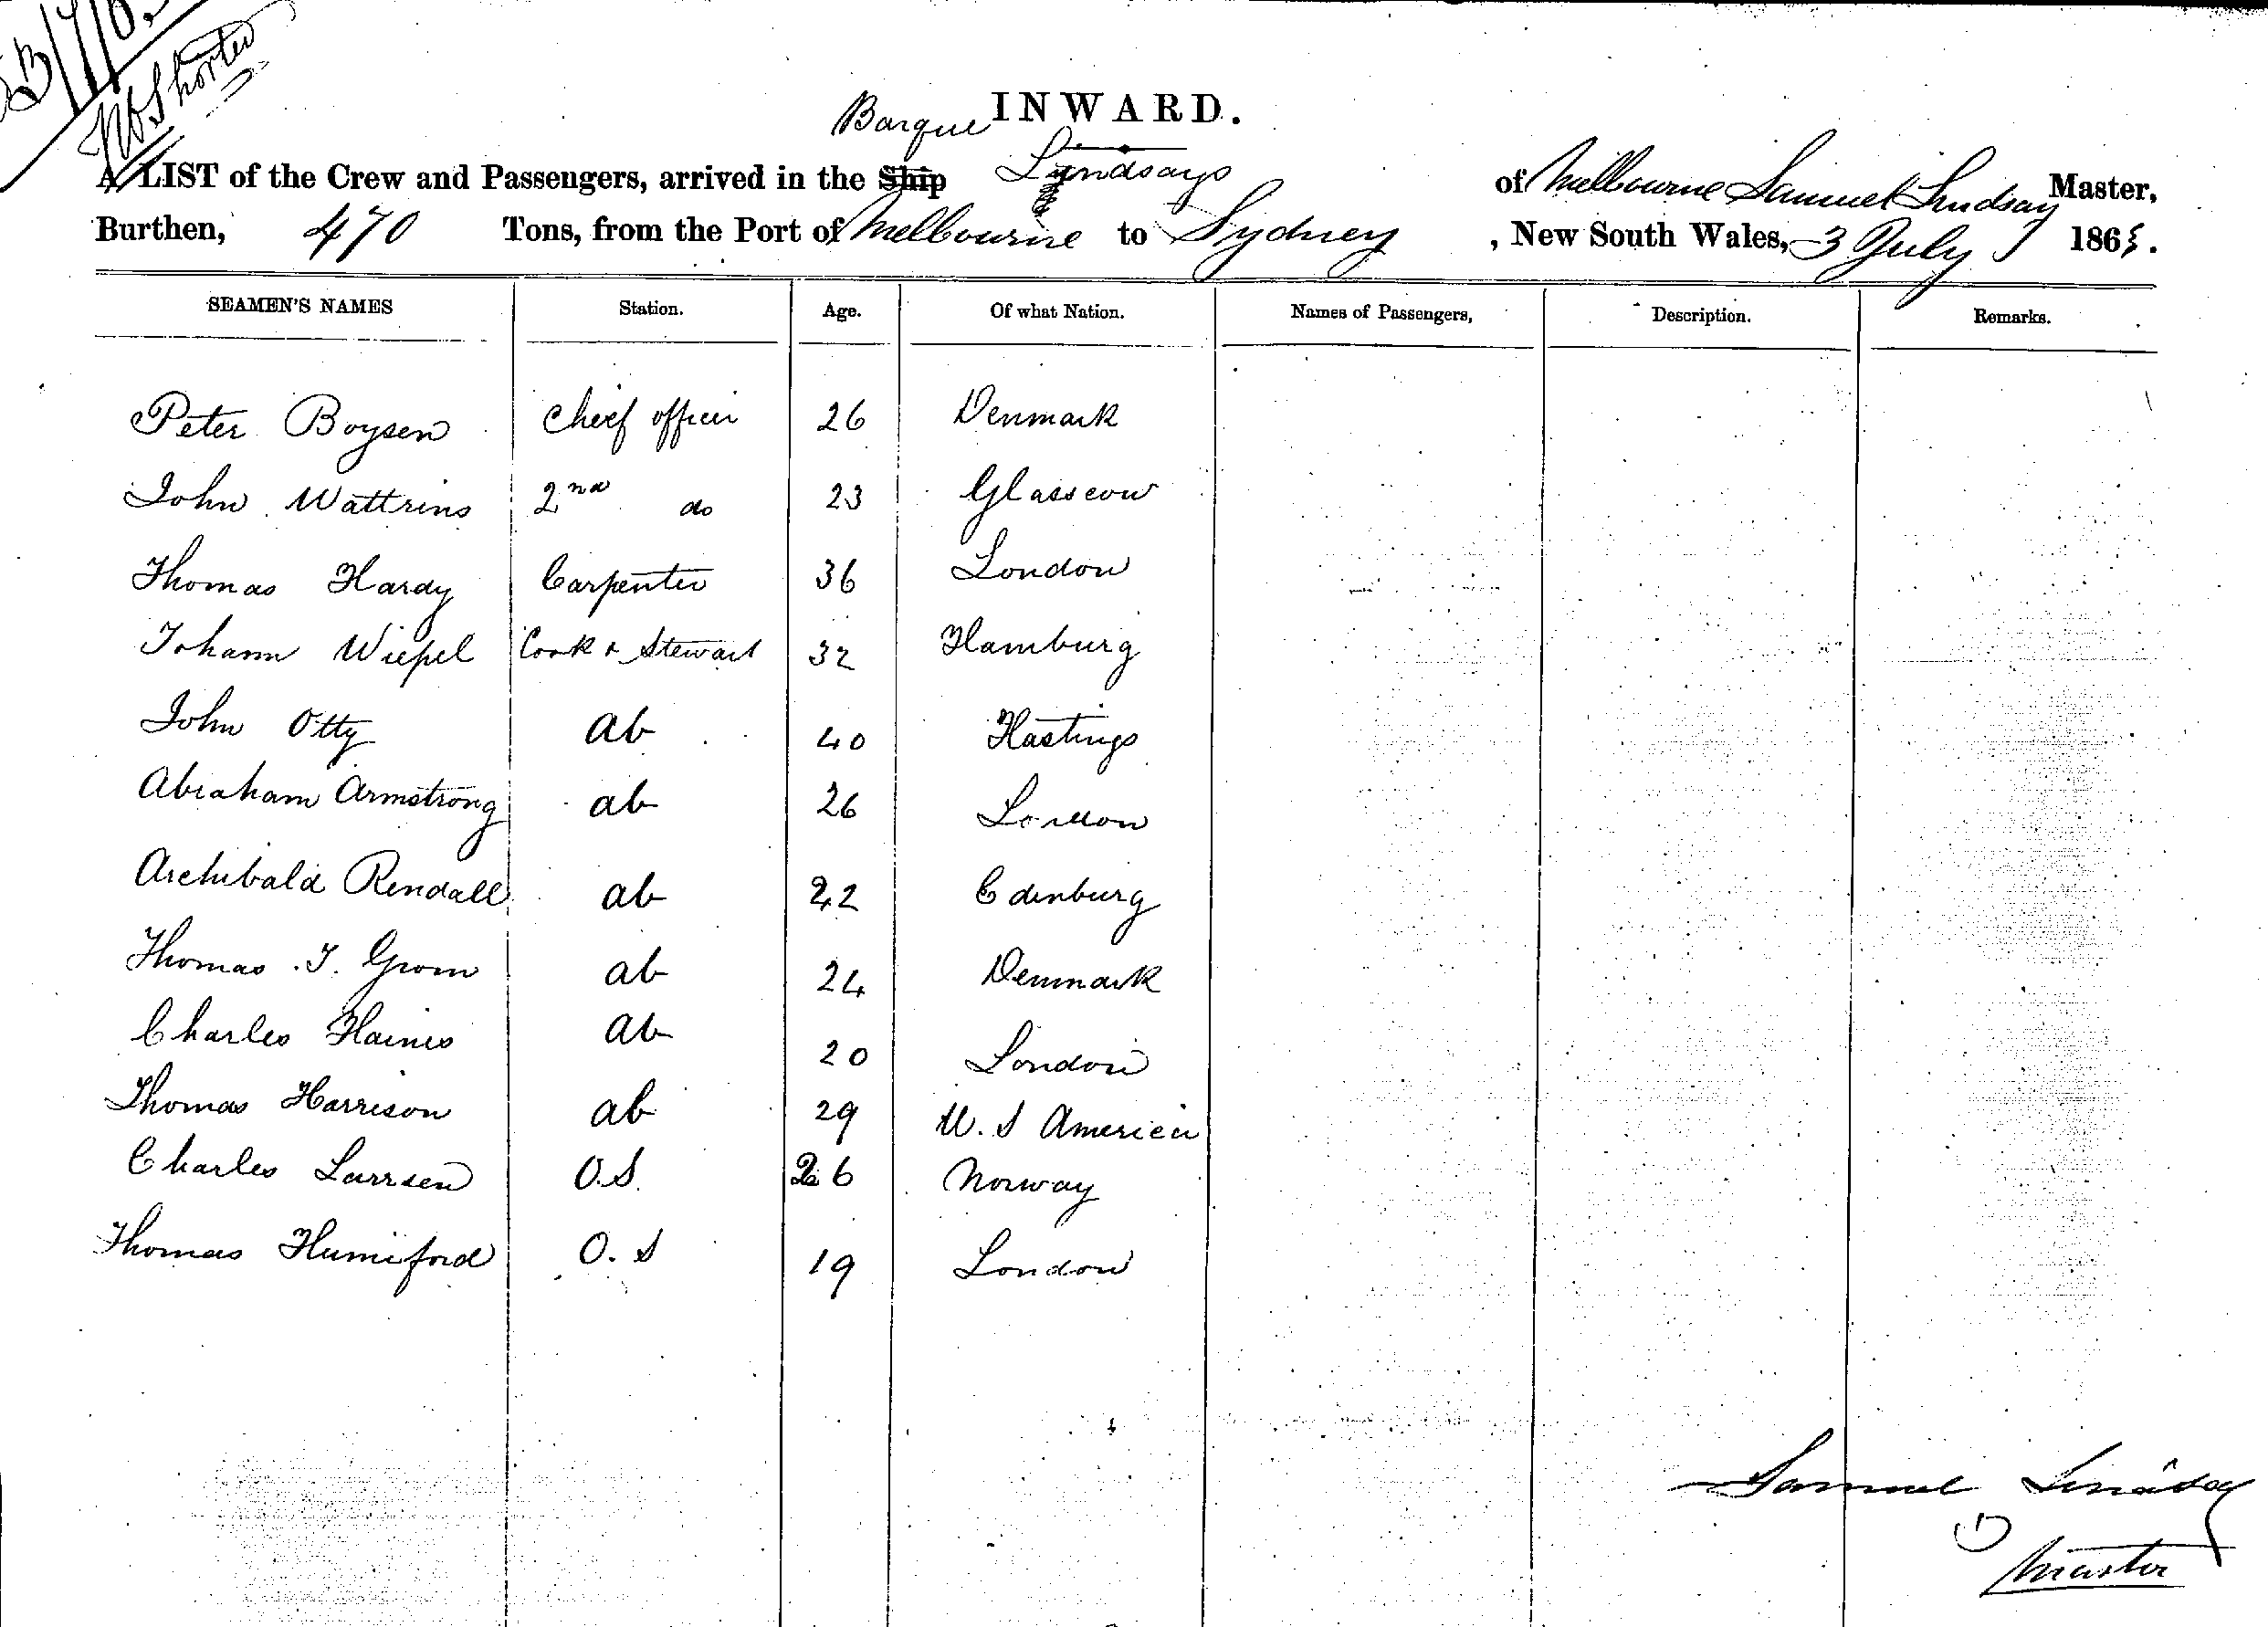 W Shorter
INWARD.
Barque
A LIST of the Crew and Passengers, arrived in the Ship Lyndsays of Melbourne Samuel Lindsay Master,
Burthen, 470 Tons, from the Port of Melbourne to Sydney , New South Wales, 3 July 186 .
SEAMEN'S NAMES Station. Age. Of what Nation. Names of Passengers, Description. Remarks.
Peter Boysen Cheif officer 26 Denmark
John Wattrins 2nd do 23 Glasscow
Thomas Hardy Carpenter 36 London
Johann Wiepel Cook & Stewart 32 Hamburg
John Otty ab 40 Hastings
Abraham Armstrong ab 26 London
Archibald Rendall ab 22 Edinburg
Thomas J. Grom ab 24 Denmark
Charles Haines ab 20 London
Thomas Harrison ab 29 U. S America
Charles Larrsen O.S. 26 Norway
Thomas Humiford O. S 19 London
Samuel Lindsay
Master